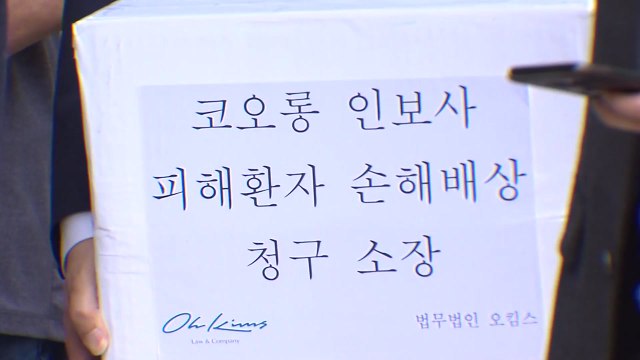 코오롱 인보사
피해환자 손해배상
청구 소장
Oh Kims
Law & Company
법무법인 오킴스